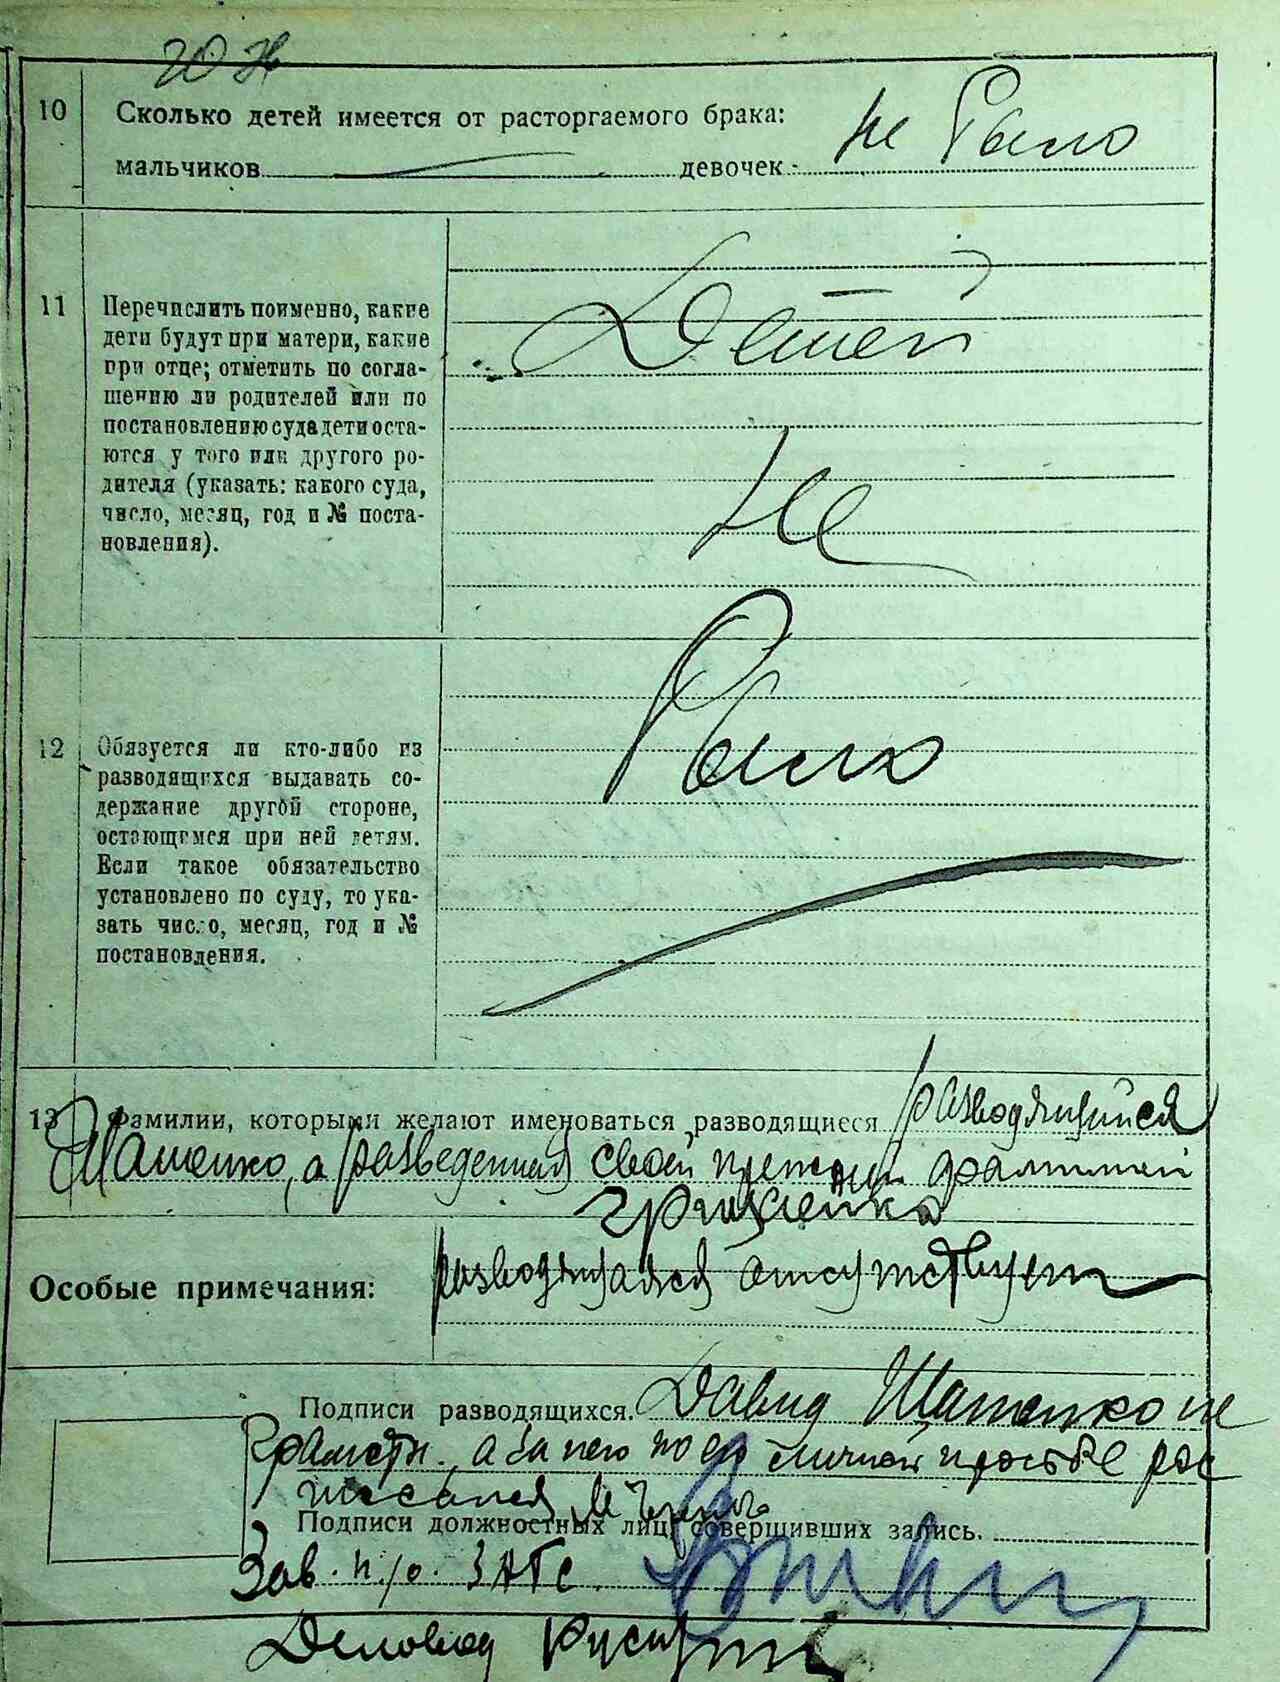 10 Сколько детей имеется от расторгаемого брака:
мальчиков девочек не было
11 Перечислить поименно, какие
дети будут при матери, какие
при отце; отметить по согла-
шению ли родителей или по
постановлению суда дети оста-
ются у того или другого ро-
дителя (указать: какого суда,
число, месяц, год и № поста-
новления).
Детей
не
было
12 Обязуется ли кто-либо из
разводящихся выдавать со-
держание другой стороне,
остающимся при ней детям.
Если такое обязательство
установлено по суду, то ука-
зать число, месяц, год и №
постановления.
13 Фамилии, которыми желают именоваться разводящиеся разводящийся
Шатенко, а разведенная своей прежней фамилией
Грищенко
Особые примечания: разводящаяся отсутствует
Подписи разводящихся. Давид Шатенко не
грамотн., а за него по его личной просьбе рас
писался
Подписи должностных лиц, совершивших запись.
Зав. п/о. ЗАГС
Деловод